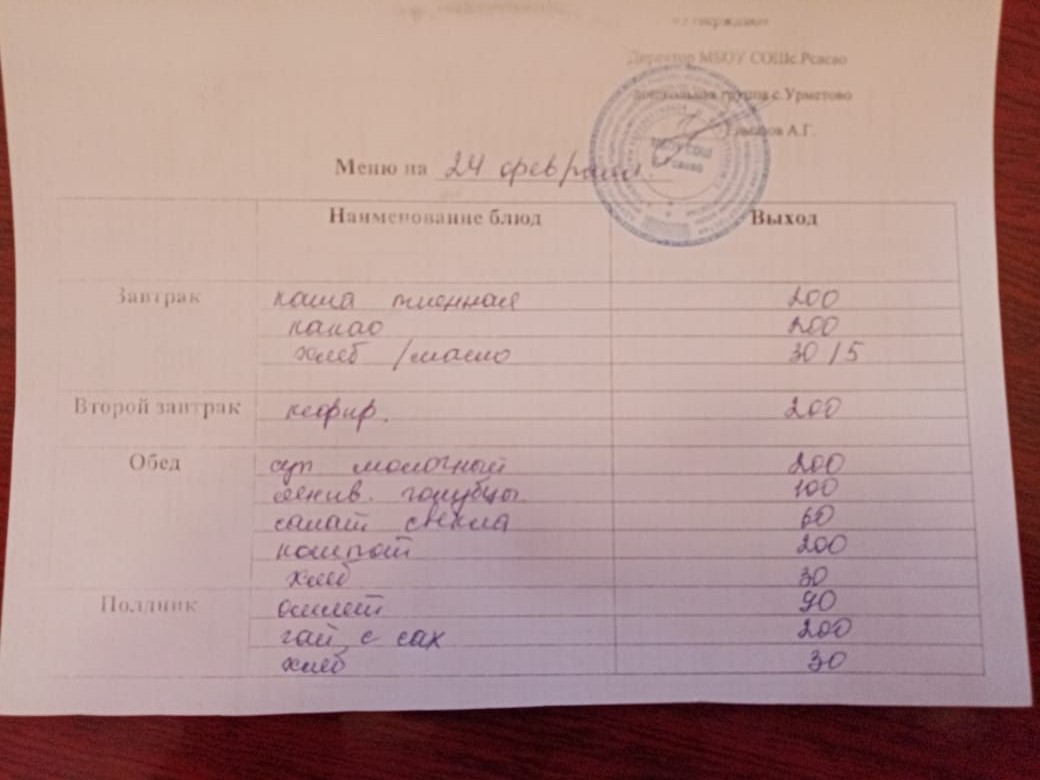 Утверждаю
Директор МБОУ СОШс.Рсаево
дошкольная группа с.Урметово
А.Г.
МБОУ СОШ
Меню на 24 февраля.
Наименование блюд Выход
Завтрак каша пшенная 200
какао 200
хлеб /масло 30/5
Второй завтрак кефир. 200
Обед суп молочный 200
ленив. голубцы 100
салат свекла 60
компот 200
хлеб 30
Полдник омлет 90
чай с сах 200
хлеб 30